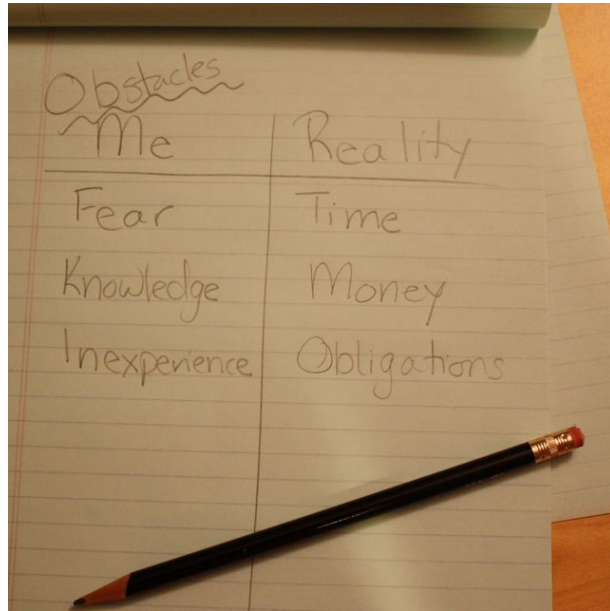 Obstacles
Me Reality
Fear Time
Knowledge Money
Inexperience Obligations